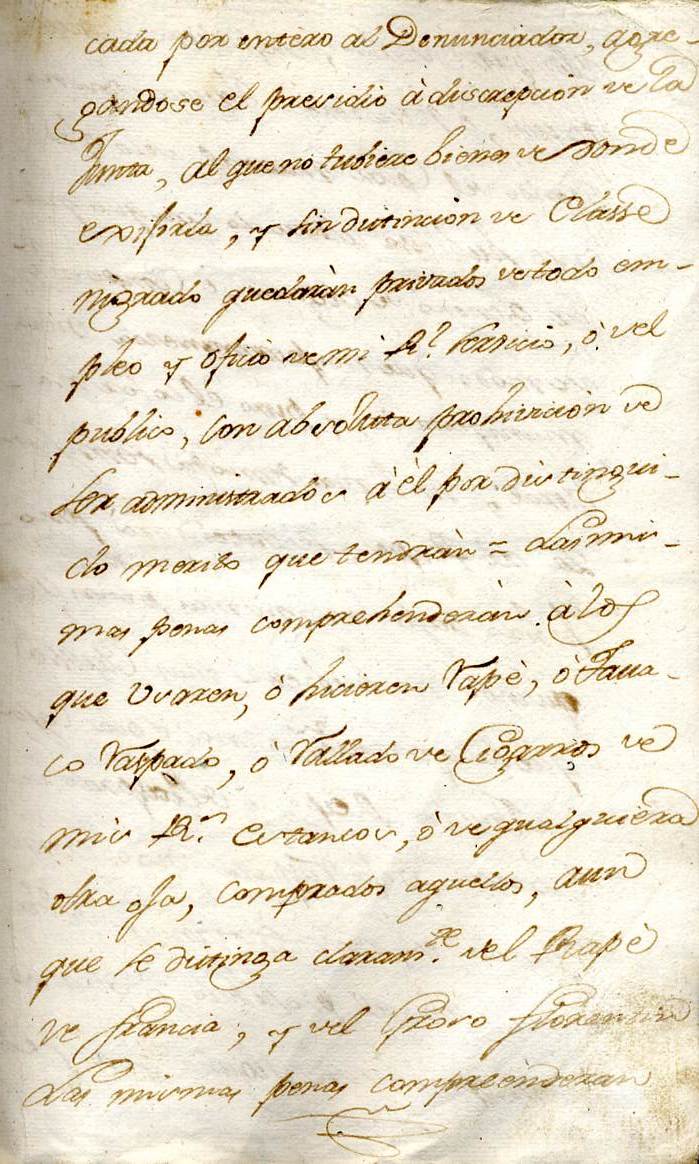 cada por entero al Denunciador, agre-
gandose el presidio à discrepcion de la
Junta, al que no tubiere bienes de donde
exisirla, y sin distincion de Classe
ni grado quedaràn privados de todo em-
pleo y oficio de mi Rl. servicio, ò del
publico, con absoluta prohivicion de
ser administrados à èl por distingui-
do merito que tendràn = Las mis-
mas penas comprehenderàn à los
que usaren, ò hicieren Rapè, ò Taba-
co Raspado, ò Rallado de Cigarros de
mis Rs. Estancos, ò de qualquiera
otra oja, comprados aquellos, aun
que se distinga claramte. del Rapè
de francia, y del Groso florentin
Las mismas penas compreenderan